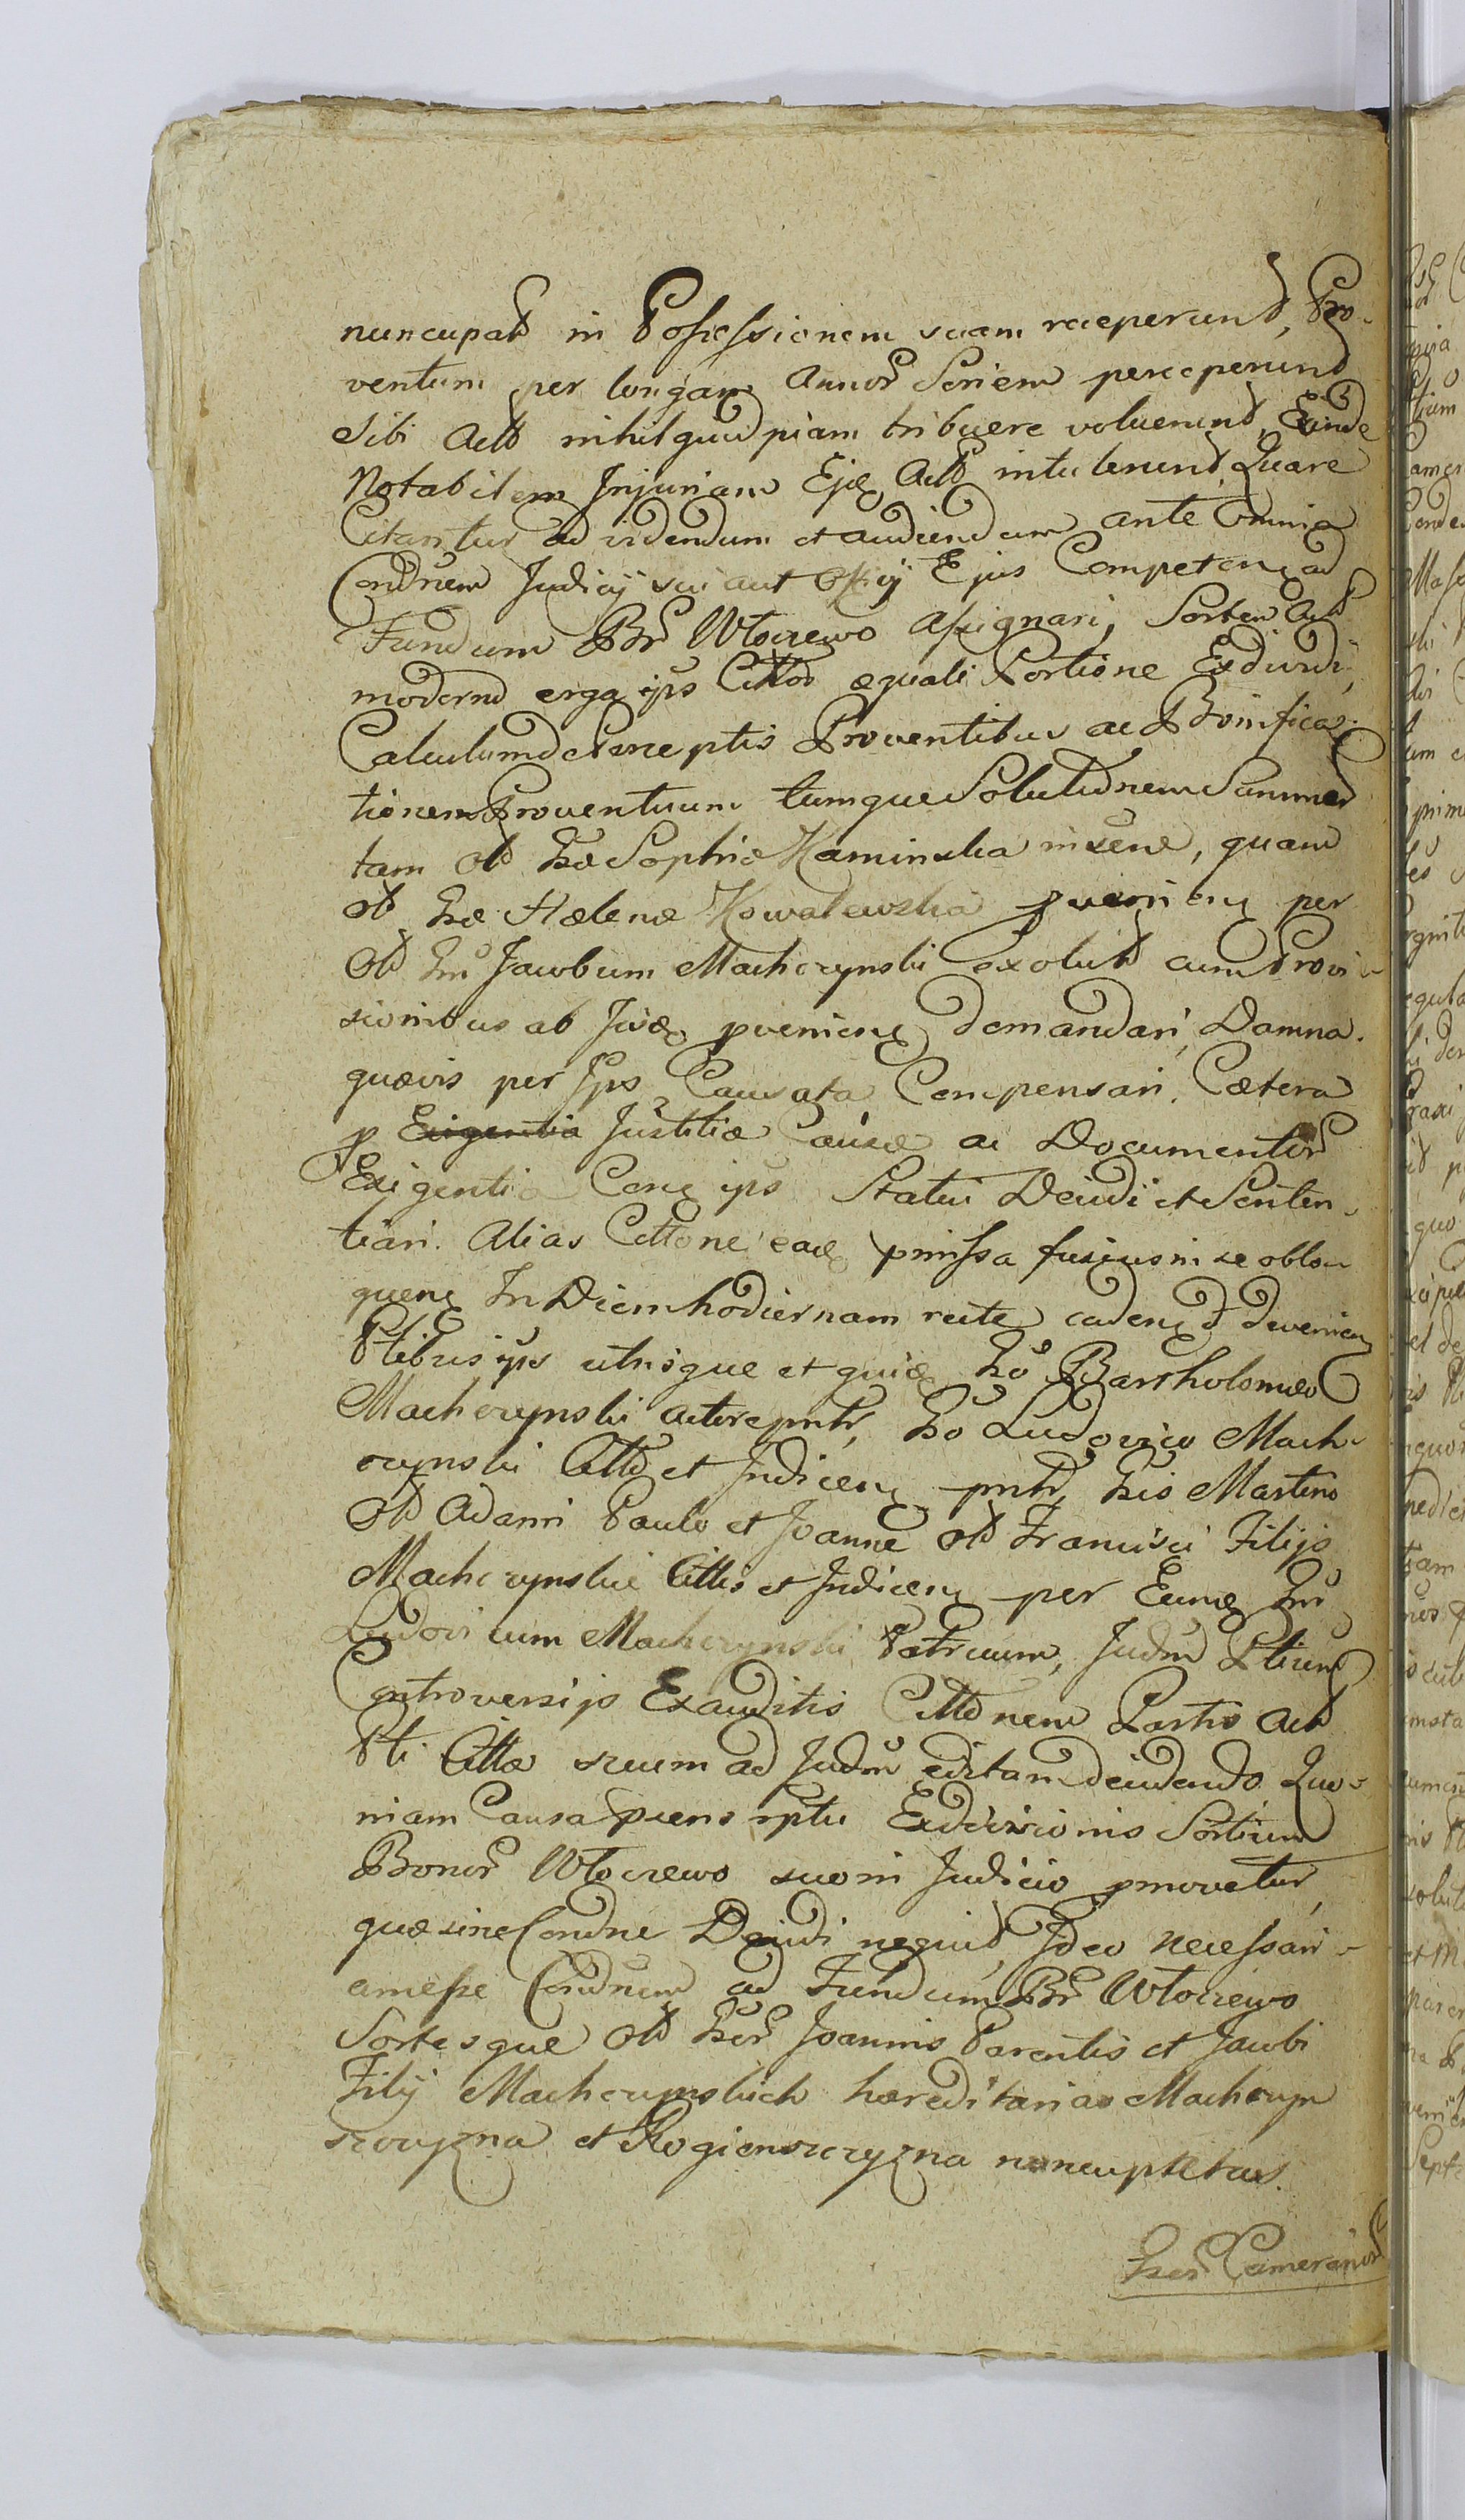 nuncupat in Possessionem suam receperunt, Pro-
ventum per longam Annor Seriem perceperunt
Sibi Act nihilquidpiam tribuere voluerunt, Exinde
Notabilem Injuriam Ejq Act intulerunt, Quare
Citantur ad videndum et audiendum ante omnia
Condnem Judicij sui aut Officij Ejus Competen ad
Fundum Br Włocrewo assignari, Sortem Act
modern erga ips Cittos æquali Portione Exdividi,
Calculum de perceptis Proventibus ac Bonifica-
tionem Proventuum tumque Solutionem Summar
tam Ol Gsæ Sophiæ Kaminska inscne, quam
Ol Gsæ Helenæ Kowalewska pvenien per
Ol Gsm Jacobum Machczynski exolut cum Provi-
sionibus ab Jisdq pvenien demandari, Damna
quævis per Jps Causata Compensari, Cætera
p Exigentia Justitiæ Causæ ac Documentor
Exigentia Conq ips Statui Decidi et Senten-
tiari. Alias Cittone eadq pmissa fusius in se oblo-
quen In Diem hodiernam recte caden et devenien
Ptibus ips utrisque et quidq Gso Bartholomeo
Machczynski Actore pntr, Gso Ludovico Mach-
czynski Citto et Judicen pntr, Gsis Martino
Ol Adami Paulo et Joanne Ol Francisci Filijs
Machczynskie Cittis et Judicen per Eundq Gsm
Ludovicum Machczynski Patruum, Judm Ptium
Controversijs Exauditis Cittonem Partis Act
Pti Cittæ secum ad Judm editam decidendo. Quo-
niam Causa pnens rptu Exdivisionis Sortium
Bonor Włocrewo suo in Judicio pmovetur,
quæ sine Condne Decidi nequit, Ideo necessari-
am esse Condnem ad Fundum Br Włocrewo
Sortesque Ol Gsor Joannis Parentis et Jacobi
Filij Machczynskich hæreditarias Machczyn
szczyzna et Rogienszczyzna nuncuptatas.
Gsor Camerarior